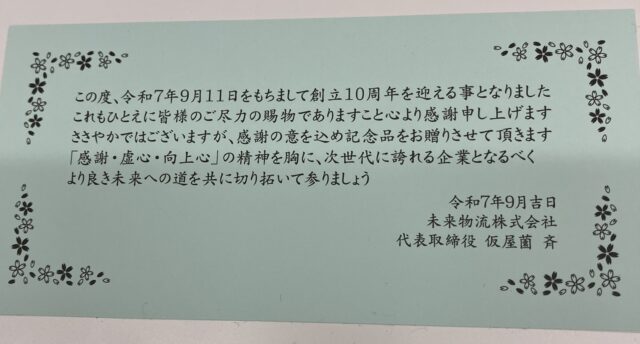 この度、令和7年9月11日をもちまして創立10周年を迎える事となりました
これもひとえに皆様のご尽力の賜物でありますこと心より感謝申し上げます
ささやかではございますが、感謝の意を込め記念品をお贈りさせて頂きます
「感謝・虚心・向上心」の精神を胸に、次世代に誇れる企業となるべく
より良き未来への道を共に切り拓いて参りましょう
令和7年9月吉日
未来物流株式会社
代表取締役 仮屋薗 斉